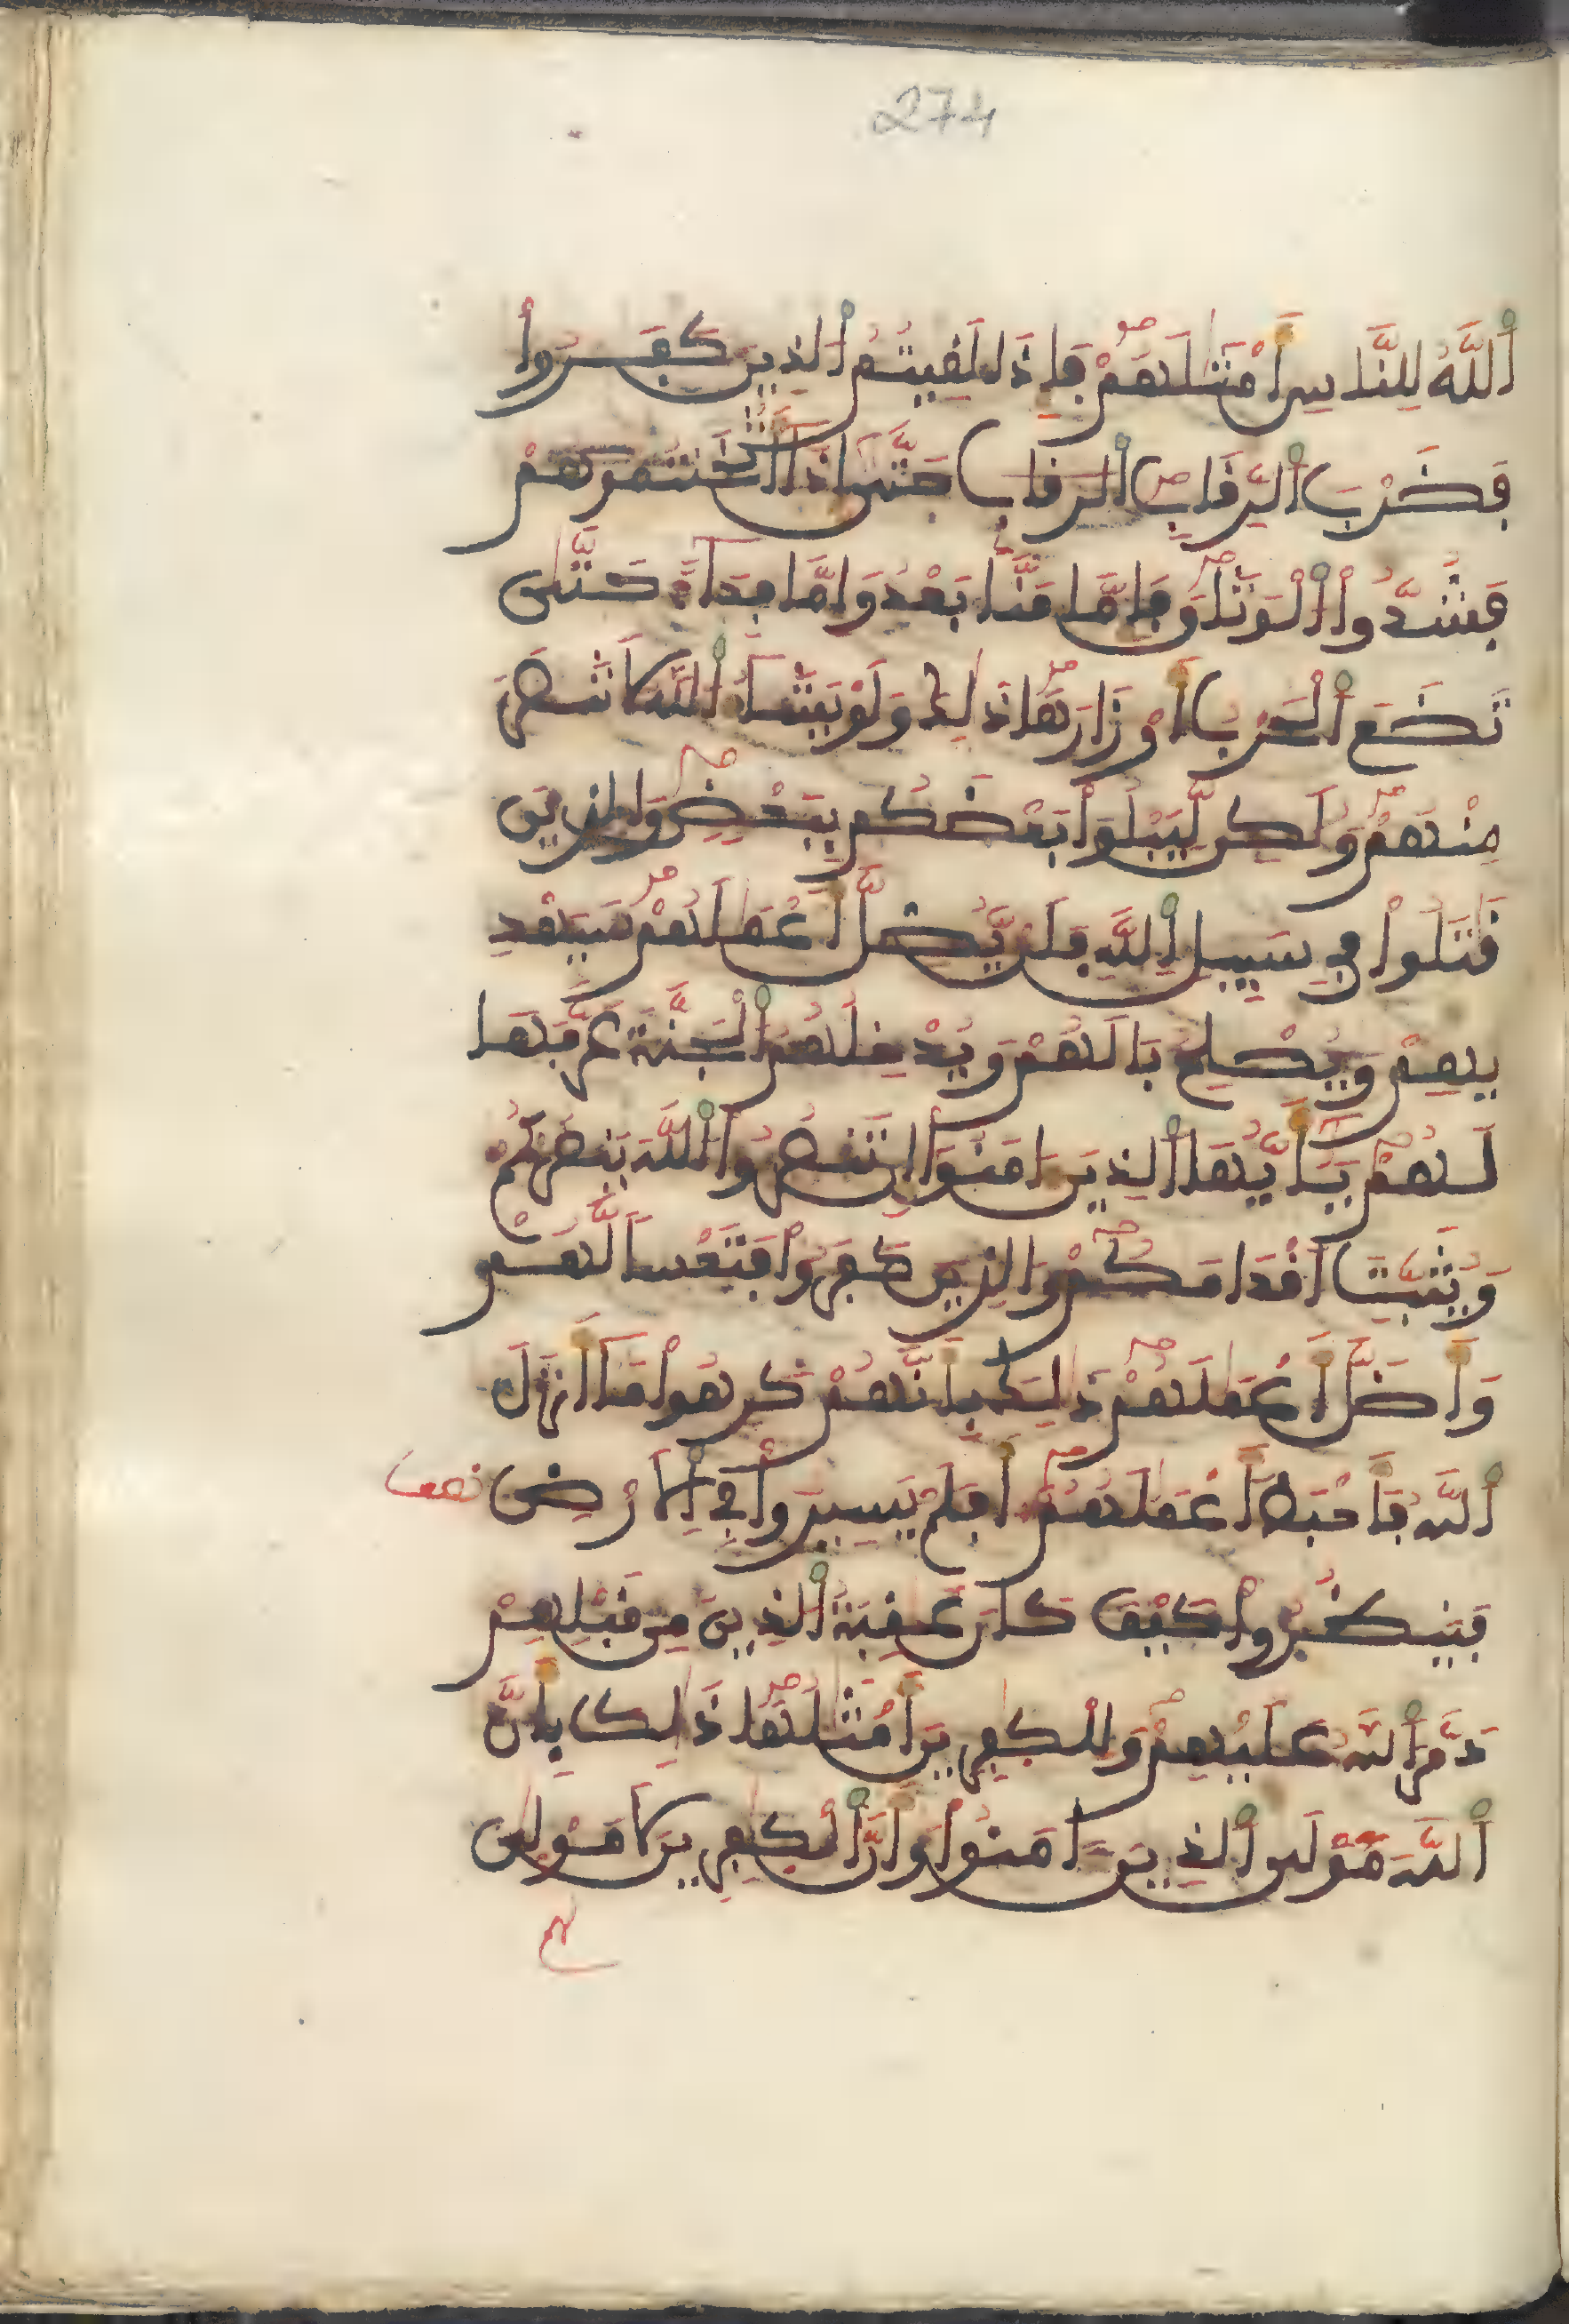 274
أَللَّهُ لِلنَّاسِ أَمْثَٰلَهُمْ فَإِذَا لَقِيتُمُ أُلذِينَ كَفَرُواْ
فَضَرْبَ أَلرِّقَابِ أَلرقاب حَتَّىٰ إِذَا أَثْخَنتُمُوهُمْ
فَشُدُّواْ أُلْوَثَاقَ فَإِمَّا مَنّاً بَعْدُ وَإِمَّا فِدَآءً حَتَّىٰ
تَضَعَ أَلْحَرْبُ أَوْزَارَهَا ذَٰلِكَ وَلَوْ يَشَآءُ أُللَّهُ لَانتَصَرَ
مِنْهُمْ وَلَٰكِن لِّيَبْلُوَاْ بَعْضَكُم بِبَعْضٍ وَالذِينَ
قَٰتَلُواْ فِي سَبِيلِ أِللَّهِ فَلَنْ يُّضِلَّ أَعْمَٰلَهُمْ سَيَهْدِ
يهِمْ وَيُصْلِحُ بَالَهُمْ وَيُدْخِلُهُمُ أُلْجَنَّةَ عَرَّفَهَا
لَهُمْ يَٰٓأَيُّهَا أَلذِينَ ءَامَنُوٓاْ إِن تَنصُرُواْ أُللَّهَ يَنصُرْكُمْ
وَيُثَبِّتَ أَقْدَامَكُمْ وَالذِينَ كَفَرُواْ فَتَعْساً لَّهُمْ
وَأَضَلَّ أَعْمَٰلَهُمْ ذَٰلِكَ بِأَنَّهُمْ كَرِهُواْ مَآ أَنزَلَ
أَللَّهُ فَأَحْبَطَ أَعْمَٰلَهُمْ أَفَلَمْ يَسِيرُواْ فِي أِلَارْضِ نصف
فَيَنظُرُواْ كَيْفَ كَانَ عَٰقِبَةُ أُلذِينَ مِن قَبْلِهِمْ
دَمَّرَ أَللَّهُ عَلَيْهِمْ وَلِلْكَٰفِرِينَ أَمْثَٰلُهَا ذَٰلِكَ بِأَنَّ
أَللَّهَ مَوْلَى أَلذِينَ ءَامَنُواْ وَأَنَّ أَلْكَٰفِرِينَ لَا مَوْلَىٰ
لهم